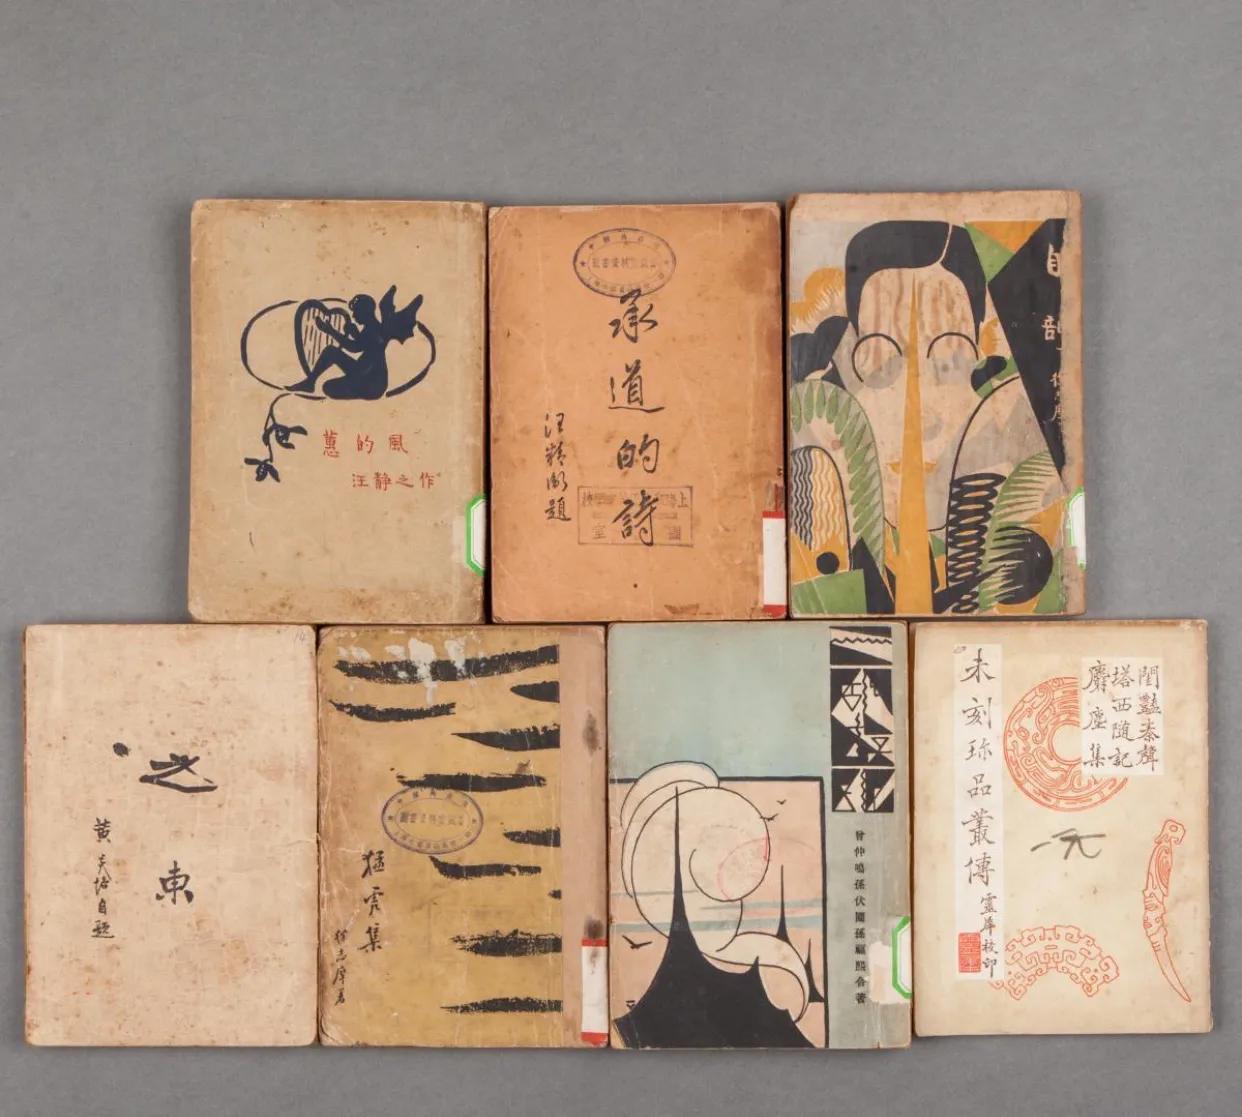 蕙的風
汪静之作
承道的詩
汪精衛題
自剖
徐志摩
14
之東
黄炎培自題
猛虎集
徐志摩著
曾仲鳴孫伏園孫福熙合著
閨豔秦聲
塔西随記
麝塵集
未刻珎品叢傳
靈犀校印